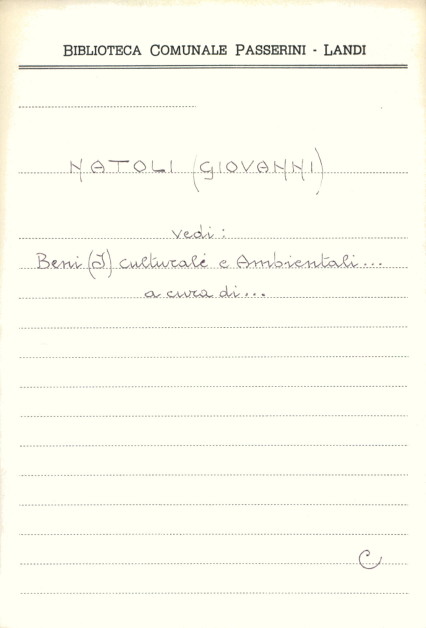 BIBLIOTECA COMUNALE PASSERINI - LANDI
NATOLI (GIOVANNI)
vedi:
Beni (I) culturali e Ambientali...
a cura di...
C